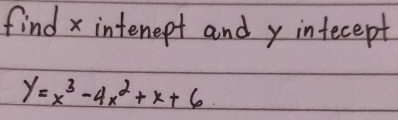 find x intenept and y intecept
y = x³ - 4x² + x + 6.